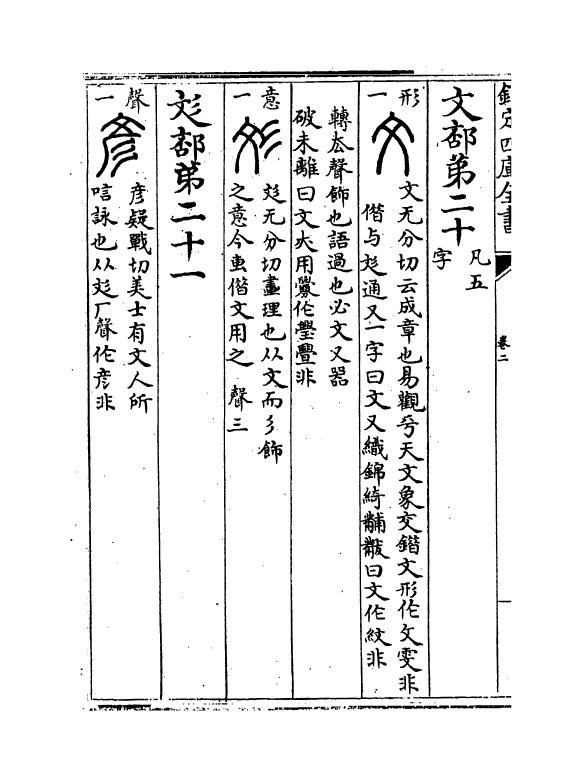 欽定四庫全書
卷二
文部第二十
凡五
字
形一
文无分切云成章也易觀乎天文象交鍇文形作攵雯非
借与彣通又一字曰文又織錦綺黼黻曰文作紋非
轉去聲飾也語過也必文又器
破未離曰文大用釁作璺亹非
意一
彣无分切畫理也从文而彡飾
之意今重偕文用之 聲三
彣部第二十一
聲一
彥疑戰切美士有文人所
唁詠也从彣厂聲作彦非